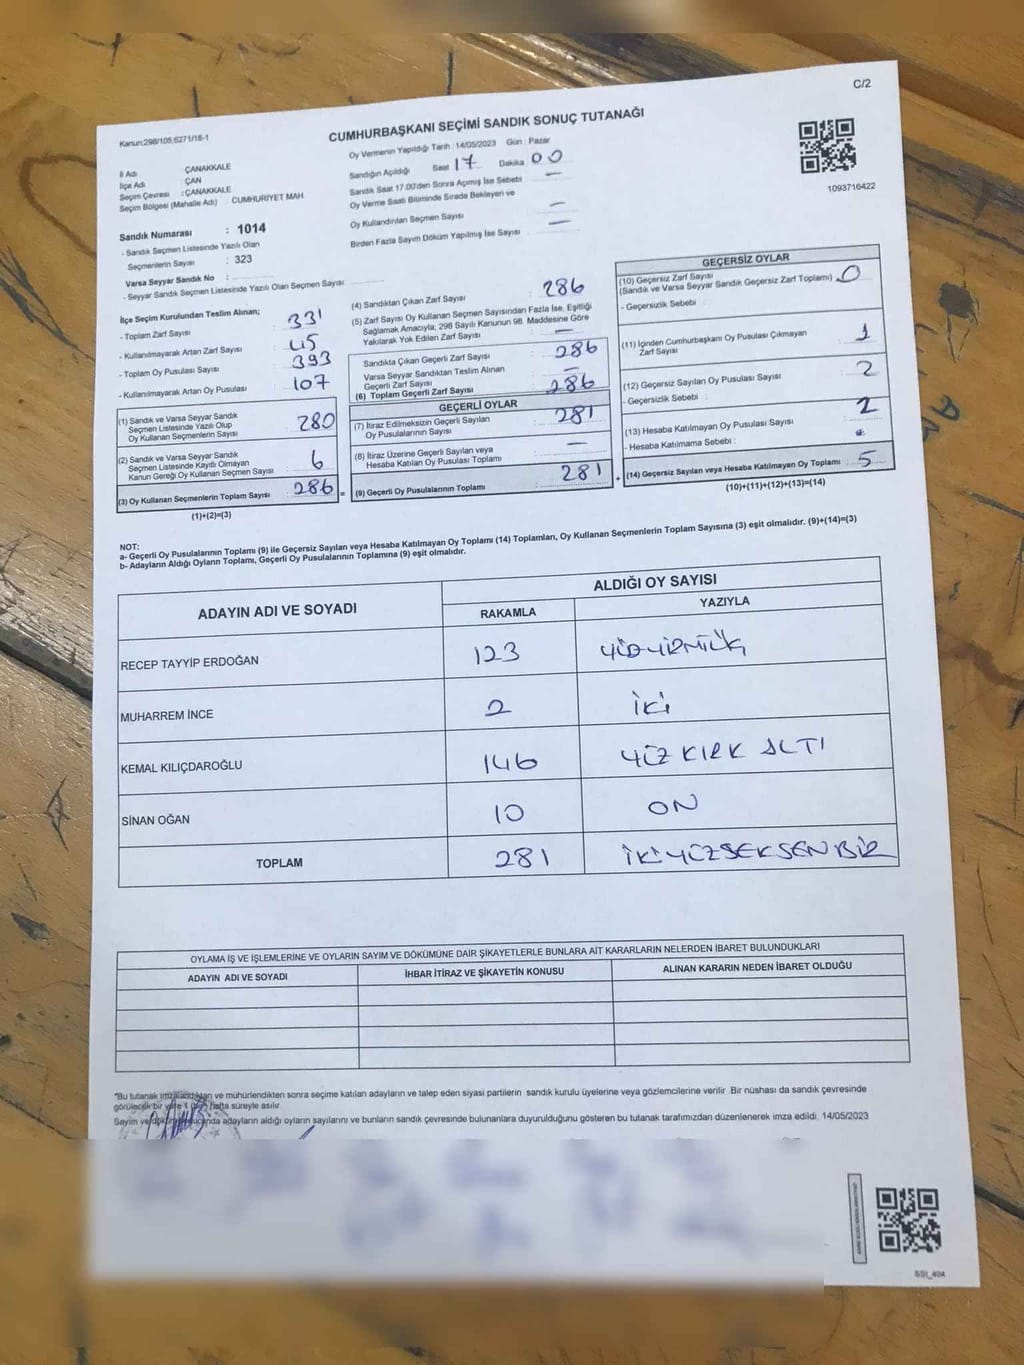 C/2
Kanun:298/105;6271/16-1
CUMHURBAŞKANI SEÇİMİ SANDIK SONUÇ TUTANAĞI
Oy Vermenin Yapıldığı Tarih : 14/05/2023 Gün : Pazar
Sandığın Açıldığı Saat 17 Dakika 00
Sandık Saat 17.00'den Sonra Açılmış İse Sebebi —
Oy Verme Saati Bitiminde Sırada Bekleyen ve
Oy Kullandırılan Seçmen Sayısı —
Birden Fazla Sayım Döküm Yapılmış İse Sayısı —
1093716422
İl Adı : ÇANAKKALE
İlçe Adı : ÇAN
Seçim Çevresi : ÇANAKKALE
Seçim Bölgesi (Mahalle Adı) : CUMHURİYET MAH
Sandık Numarası : 1014
- Sandık Seçmen Listesinde Yazılı Olan
Seçmenlerin Sayısı : 323
Varsa Seyyar Sandık No :
- Seyyar Sandık Seçmen Listesinde Yazılı Olan Seçmen Sayısı
İlçe Seçim Kurulundan Teslim Alınan;
- Toplam Zarf Sayısı 331
- Kullanılmayarak Artan Zarf Sayısı 45
- Toplam Oy Pusulası Sayısı 393
- Kullanılmayarak Artan Oy Pusulası 107
(1) Sandık ve Varsa Seyyar Sandık
Seçmen Listesinde Yazılı Olup
Oy Kullanan Seçmenlerin Sayısı 280
(2) Sandık ve Varsa Seyyar Sandık
Seçmen Listesinde Kayıtlı Olmayan
Kanun Gereği Oy Kullanan Seçmen Sayısı 6
(3) Oy Kullanan Seçmenlerin Toplam Sayısı 286 =
(1)+(2)=(3)
(4) Sandıktan Çıkan Zarf Sayısı 286
(5) Zarf Sayısı Oy Kullanan Seçmen Sayısından Fazla İse, Eşitliği
Sağlamak Amacıyla, 298 Sayılı Kanunun 98. Maddesine Göre
Yakılarak Yok Edilen Zarf Sayısı —
Sandıkta Çıkan Geçerli Zarf Sayısı 286
Varsa Seyyar Sandıktan Teslim Alınan
Geçerli Zarf Sayısı —
(6) Toplam Geçerli Zarf Sayısı 286
GEÇERLİ OYLAR
(7) İtiraz Edilmeksizin Geçerli Sayılan
Oy Pusulalarının Sayısı 281
(8) İtiraz Üzerine Geçerli Sayılan veya
Hesaba Katılan Oy Pusulası Toplamı —
(9) Geçerli Oy Pusulalarının Toplamı 281 +
GEÇERSİZ OYLAR
(10) Geçersiz Zarf Sayısı
(Sandık ve Varsa Seyyar Sandık Geçersiz Zarf Toplamı) 0
- Geçersizlik Sebebi :
(11) İçinden Cumhurbaşkanı Oy Pusulası Çıkmayan
Zarf Sayısı 1
(12) Geçersiz Sayılan Oy Pusulası Sayısı 2
- Geçersizlik Sebebi :
(13) Hesaba Katılmayan Oy Pusulası Sayısı 2
- Hesaba Katılmama Sebebi :
(14) Geçersiz Sayılan veya Hesaba Katılmayan Oy Toplamı 5
(10)+(11)+(12)+(13)=(14)
NOT:
a- Geçerli Oy Pusulalarının Toplamı (9) ile Geçersiz Sayılan veya Hesaba Katılmayan Oy Toplamı (14) Toplamları, Oy Kullanan Seçmenlerin Toplam Sayısına (3) eşit olmalıdır. (9)+(14)=(3)
b- Adayların Aldığı Oyların Toplamı, Geçerli Oy Pusulalarının Toplamına (9) eşit olmalıdır.
ADAYIN ADI VE SOYADI ALDIĞI OY SAYISI
RAKAMLA YAZIYLA
RECEP TAYYİP ERDOĞAN 123
MUHARREM İNCE 2 İKİ
KEMAL KILIÇDAROĞLU 146 YÜZ KIRK ALTI
SİNAN OĞAN 10 ON
TOPLAM 281 İKİYÜZSEKSENBİR
OYLAMA İŞ VE İŞLEMLERİNE VE OYLARIN SAYIM VE DÖKÜMÜNE DAİR ŞİKAYETLERLE BUNLARA AİT KARARLARIN NELERDEN İBARET BULUNDUKLARI
ADAYIN ADI VE SOYADI İHBAR İTİRAZ VE ŞİKAYETİN KONUSU ALINAN KARARIN NEDEN İBARET OLDUĞU
"Bu tutanak imzalandıktan ve mühürlendikten sonra seçime katılan adayların ve talep eden siyasi partilerin sandık kurulu üyelerine veya gözlemcilerine verilir. Bir nüshası da sandık çevresinde
görülecek bir yere 1 hafta süreyle asılır.
Sayım ve döküm sonucunda adayların aldığı oyların sayılarını ve bunların sandık çevresinde bulunanlara duyurulduğunu gösteren bu tutanak tarafımızdan düzenlenerek imza edildi. 14/05/2023
SSI_404